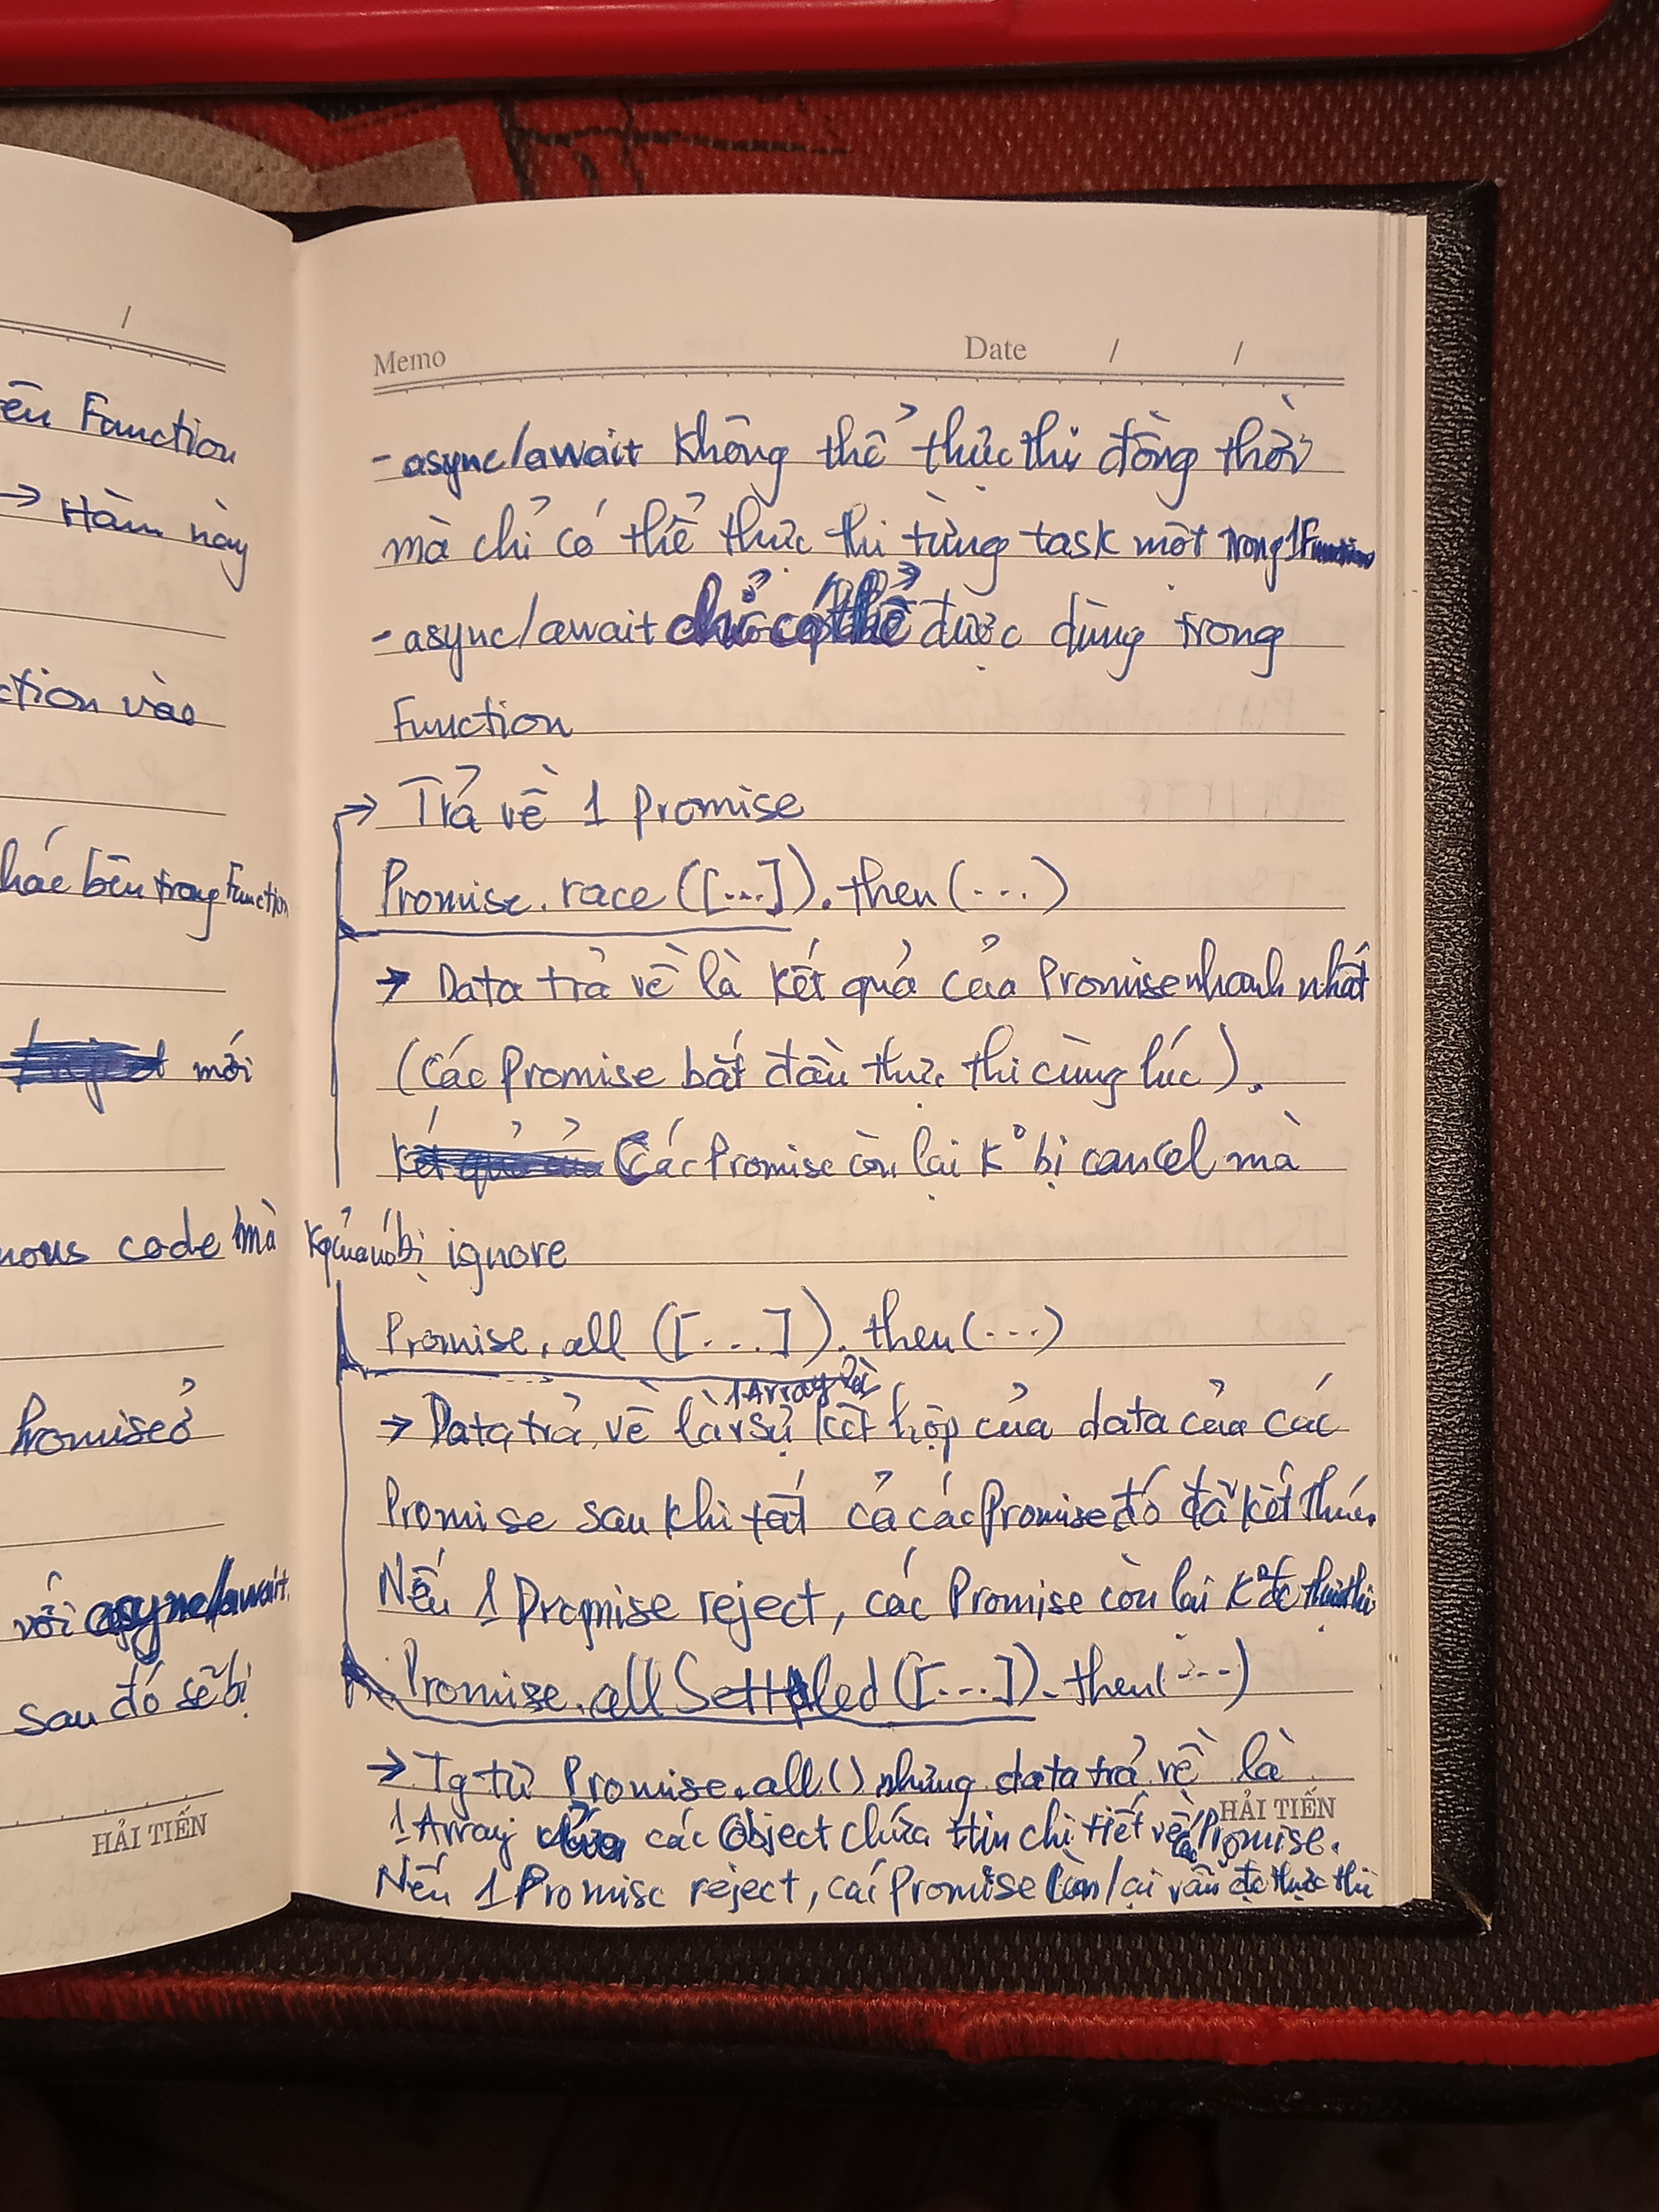 /
ên Function
→ Hàm này
ction vào
hác bên trong Function
mới
nous code mà
Promise ở
với async/await
sau đó sẽ bị
HẢI TIẾN
Memo Date / /
- async/await không thể thực thi đồng thời
mà chỉ có thể thực thi từng task một trong 1 Function
- async/await chỉ có thể được dùng trong
Function
→ Trả về 1 Promise
Promise.race([...]).then(...)
→ Data trả về là kết quả của Promise nhanh nhất
(Các Promise bắt đầu thực thi cùng lúc).
Các Promise còn lại k° bị cancel mà
kquả nó bị ignore
Promise.all([...]).then(...)
1 Array là
→ Data trả về là sự kết hợp của data của các
Promise sau khi tất cả các Promise đó đã kết thúc.
Nếu 1 Promise reject, các Promise còn lại k° đc thực thi
Promise.allSettled([...]).then(...)
→ Tg tự Promise.all() nhưng data trả về là
HẢI TIẾN
1 Array chứa các Object chứa ttin chi tiết về các Promise.
Nếu 1 Promise reject, các Promise còn lại vẫn đc thực thi